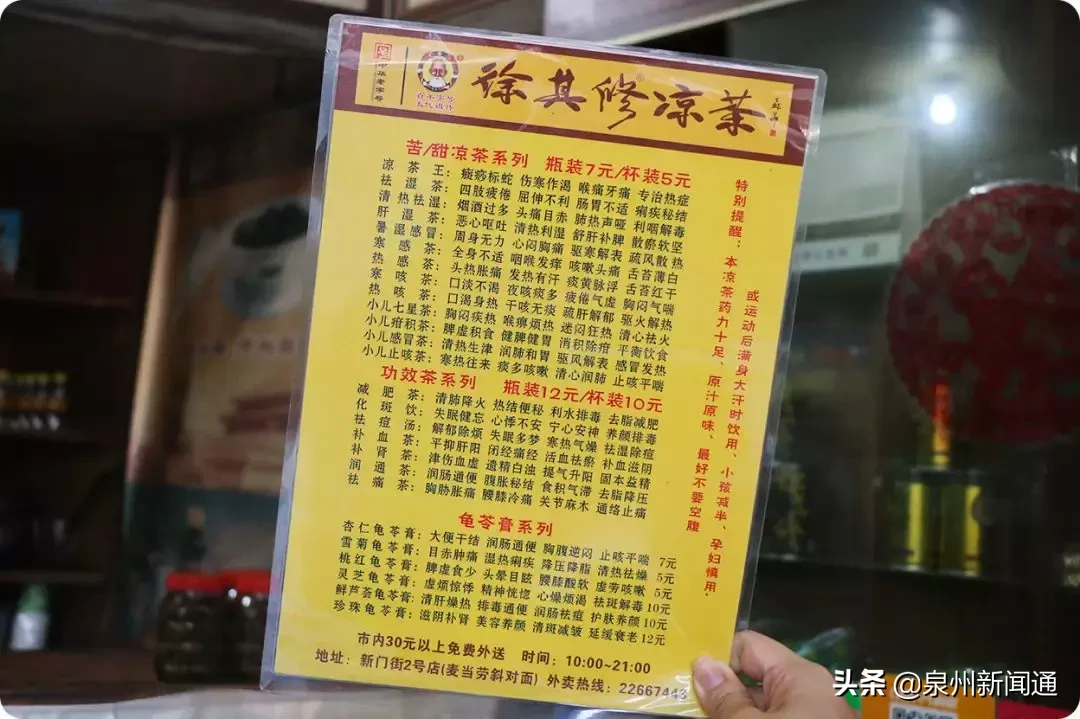 中华老字号
百年字号
五代祖传
徐其修凉茶
苦/甜凉茶系列 瓶装7元/杯装5元
凉茶王：癍痧标蛇 伤寒作渴 喉痛牙痛 专治热症
祛湿茶：四肢疲倦 屈伸不利 肠胃不适 痢疾秘结
清热祛湿茶：烟酒过多 头痛目赤 肺热声哑 利咽解毒
肝湿茶：恶心呕吐 利湿 舒肝补脾 散瘀软坚
暑湿感茶：周身无力 心闷 寒解表 疏风散热
寒感茶：全身不适 咽喉发痒 咳嗽头痛 舌苔薄白
热感茶：头热胀痛 发热有汗 痰黄脉浮 舌苔红干
寒咳茶：口淡不渴 夜咳痰多 疲倦气虚 胸闷气喘
热咳茶：口渴身热 干咳无痰 疏肝解郁 驱火解热
小儿七星茶：胸闷疾热 喉痹烦热 迷闷狂热 清心祛火
小儿疳积茶：脾虚积食 健脾健胃 消积除疳 平衡饮食
小儿感冒茶：清热生津 润肺和胃 驱风解表 感冒发热
小儿止咳茶：寒热往来 痰多咳嗽 清心润肺 止咳平喘
功效茶系列 瓶装12元/杯装10元
减肥茶：清肺降火 热结便秘 利水排毒 去脂减肥
化斑饮：失眠健忘 心悸不安 宁心安神 养颜排毒
祛痘汤：解郁除烦 失眠多梦 寒热气燥 祛湿除痘
补血茶：平抑肝阳 闭经痛经 活血祛瘀 补血滋阴
补肾茶：津伤血虚 遗精白浊 提气升阳 固本益精
润通茶：润肠通便 腹胀秘结 食积气滞 去脂降压
祛痛茶：胸胁胀痛 腰膝冷痛 关节麻木 通络止痛
龟苓膏系列
杏仁龟苓膏：大便干结 润肠通便 胸腹逆闷 止咳平喘 7元
雪菊龟苓膏：目赤肿痛 湿热痢疾 降压降脂 清热祛燥 5元
桃红龟苓膏：脾虚食少 头晕目眩 腰膝酸软 虚劳咳嗽 5元
灵芝龟苓膏：虚烦惊悸 精神恍惚 心燥烦渴 祛斑解毒 10元
鲜芦荟龟苓膏：清肝燥热 排毒通便 润肠祛痘 护肤养颜 10元
珍珠龟苓膏：滋阴补肾 美容养颜 清斑减皱 延缓衰老 12元
市内30元以上免费外送 时间：10:00~21:00
地址：新门街2号店(麦当劳斜对面) 外卖热线：22667443
特别提醒：本凉茶药力十足、原汁原味、最好不要空腹
或运动后满身大汗时饮用、小孩减半、孕妇慎用.
头条 @泉州新闻通